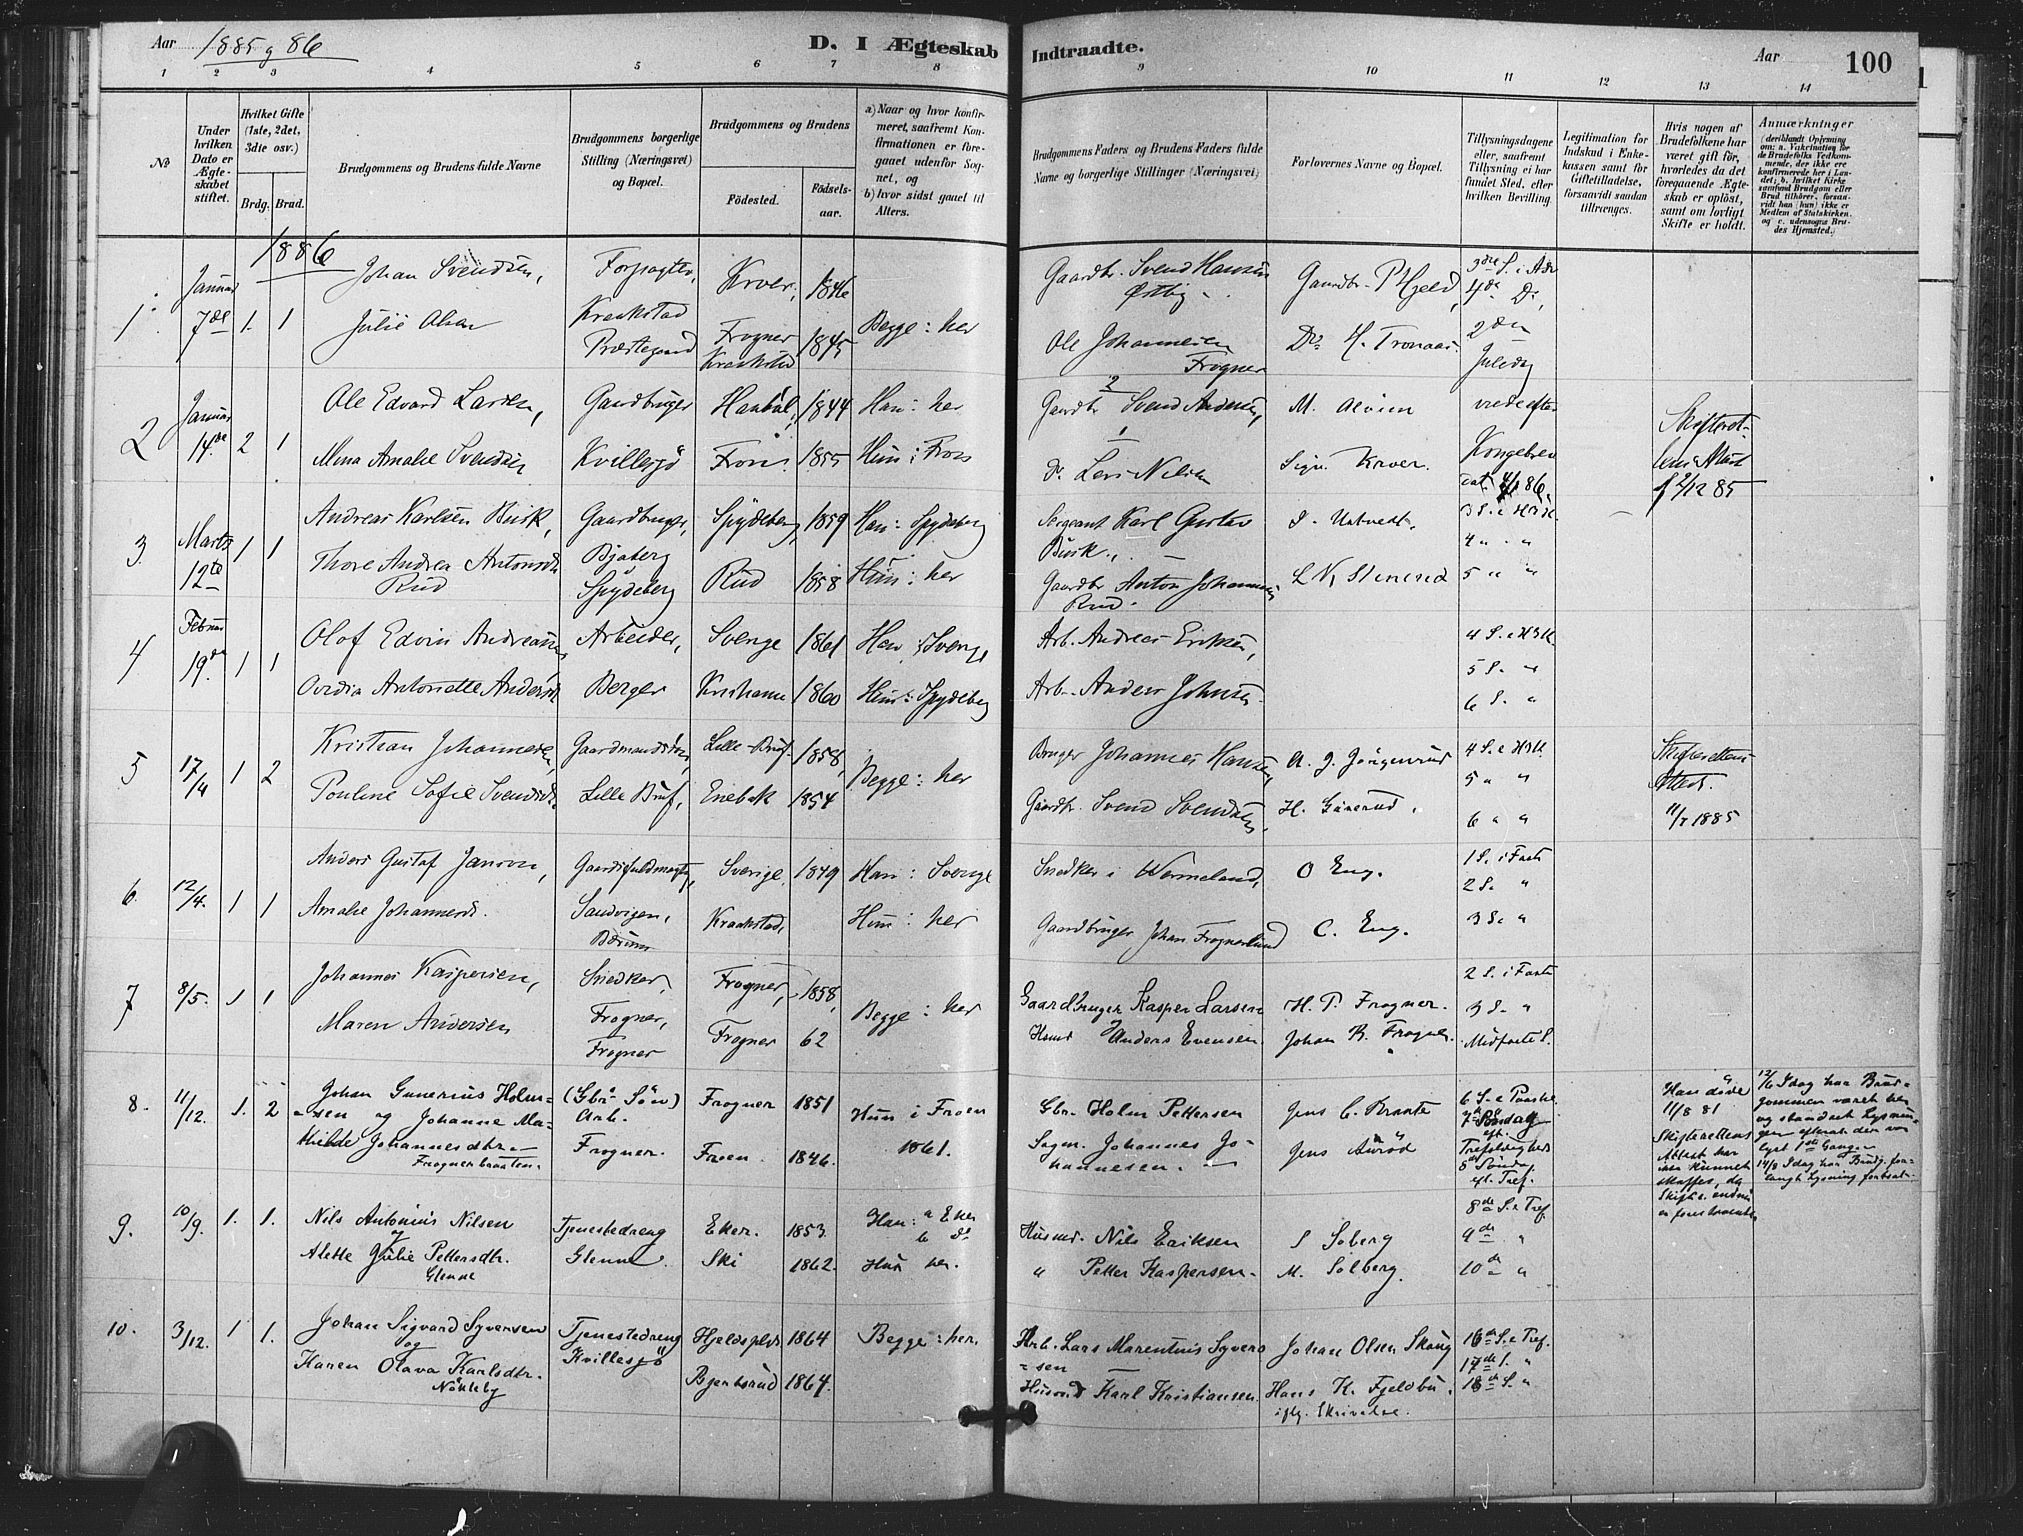 Aar 1885 g 86
D. I Ægteskab Indtraadte.
Aar
100
1 2 3 4 5 6 7 8 9 10 11 12 13 14
No
Under hvilken Dato er Ægteskabet stiftet.
Hvilket Gifte (1ste, 2det, 3die osv.)
Brdg. Brud.
Brudgommens og Brudens fulde Navne
Brudgommens borgerlige Stilling (Næringsvei) og Bopæl.
Brudgommens og Brudens
Fødested.
Fødselsaar.
a) Naar og hvor konfirmeret, saafremt Konfirmationen er foregaaet udenfor Sognet, og
b) hvor sidst gaaet til Alters.
Brudgommens Faders og Brudens Faders fulde Navne og borgerlige Stillinger (Næringsvei)
Forlovernes Navne og Bopæl.
Tillysningsdagene eller, saafremt Tillysning ei har fundet Sted, efter hvilken Bevilling.
Legitimation for Indskud i Enkekassen samt for Giftetilladelse, forsaavidt saadan tiltrænges.
Hvis nogen af Brudefolkene har været gift før, hvorledes da det foregaaende Ægteskab er opløst, samt om lovligt Skifte er holdt.
Anmærkninger
(deriblandt Oplysning om: a. Vakcination for de Brudefolks Vedkommende, der ikke ere konfirmerede her i Landet; b. hvilket Kirkesamfund Brudgom eller Brud tilhører, forsaavidt han (hun) ikke er Medlem af Statskirken, og c. udensogns Brudes Hjemsted.)
1886
1. Januar 7de 1. 1
Johan Svendsen, Forpagter, Kroer, 1846
Julie Olsen Kraakstad Præstegaard Frogner Kraakstad 1845 Begge: her
Gaardbr. Svend Hansen Østby
Gaardbr. P Hjeld, 3die S. i Adv 4de Do,
Ole Johannesen Frogner
Do H. Tronaas 2den Juledag
2 Januar 14de 2 1
Ole Edvard Larsen, Gaardbruger Haabøl, 1844 Han: her
Mina Amalie Svendsen Kvillesjø Froen 1855 Hun: Froen
2 Gaardbr Svend Andersen, M.
1 do Lars Nilsen Sign. Kroer.
Kongebrev dat. 4/1 86.
Skifteret-
f 2/12 85
3. Marts 12te 1 1
Andreas Karlsen Busk, Gaardbruger, Spydeberg, 1859 Han: Spydeberg
Thore Andrea Antonsdt Rud Spydeberg Rud 1858 Hun: her
Sergeant Karl Gustav Busk.,
Gaardbr Anton Johannesen Rud.
L N, Stenerud
3 S. e H3K
4 " "
5 " "
4 Februar 19de 1 1
Olof Edvin Andreassen, Arbeider, Sverige 1861 Han: Sverige
Antonette Andersdt Berger Kristiania 1860 Hun: Spydeberg
Arb. Andreas Eriksen,
Arb. Anders Johnsen
4 S. e H3K.
5 S. "
6 S. "
5 17/4 1 2
Kristian Johannesen, Gaardmandssøn, Lille-Bruf. 1858,
Pouline Sofie Svendsdt. Lille Bruf, Enebak 1854 Begge: her
Bruger Johannes Hansen, A. J. Jørgensrud
Gaardbr. Svend Svendsen, H. Gunerud.
4 S. e H3K.
5 " "
6 " "
Skifterettens Attest. 1885
6. 12/4. 1 1
Anders Gustaf Janson, Gaardsfuldmægtig, Sverige. 1849 Han: Sverige
Amalie Johannesdt. Sandvigen, Bærum Kraakstad, Hun: her
Snedker i Wermeland, O Eng.
Gaardbruger Johan Frognerlund C. Eng.
1 S. i Faste
2 S. "
3 S. "
7 8/5. 1 1
Johannes Kaspersen, Snedker, Frogner, 1858,
Maren Andersen Frogner, Frogner Frogner 62 Begge: her
Gaardbruger Kasper Larsen H. P. Frogner.
Husmd Anders Evensen Johan B. Frogner.
2 S. i Faste
3 S. "
Midfaste S.
8. 11/12. 1. 2
Johan Gunerius Holm-
-sen og Johanne Ma-
thilde Johannesdtr.
Frognerbraaten.
(Gbr. Søn) Arb. Frogner. Frogner 1851
Froen. 1846. Hun i Froen 1861.
Gbr. Holm Pettersen Jens C. Kraate
Sogn. Johannes Johannesen. Jens Aurød
6 S. e Paaske
7de Søndag eft.
Trefoldighed
8de Søndag
ef. Tref.
Han døde 11/8 81
Skifterettens Attest har ikke kunnet skaffes, da Skifte endnu er
12/6 Idag har Brudgommen været her og standset Lysningen efterat der var lyst 1ste Gang.
14/8 Idag har Brudg. forlangt Lysning fortsat.
9. 10/9. 1. 1.
Nils Antonius Nilsen og Tjenestedreng Eker. 1853. Han: a Eker b do
Alette Julie Pettersdtr. Glenne Glenne. Ski 1862. Hun her.
Husmd. Nils Eriksen S Solberg
" Petter Kaspersen. M. Solberg.
8de S. e Tref
9de "
10de "
10. 3/12. 1 1.
Johan Sigvard Syversen og Tjenestedreng Hjeldsplds 1864 Begge: her.
Karen Olava Karlsdtr. Nøkleby Kvillesjø Bjentsrud 1864.
Arb. Lars Marentius Syversen Johan Olsen Skaug
Husmd Karl Kristiansen. Hans K. Fjeldbu. iflg. Skrivelse.
16de S. e Tref.
17de S. "
18de S. "